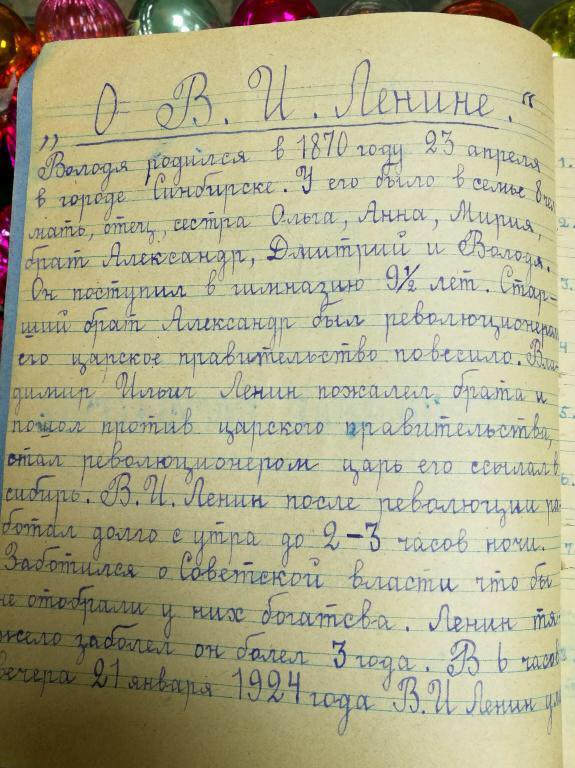 „О В. И. Ленине.“
Володя родился в 1870 году 23 апреля
в городе Синбирске. У его было в семье 8 чел
мать, отец, сестра Ольга, Анна, Мирия,
брат Александр, Дмитрий и Володя.
Он поступил в гимназию 9½ лет. Стар-
ший брат Александр был революционером
его царское правительство повесило. Вла-
димир Ильич Ленин пожалел брата и
пошол против царского правительства,
стал революционером царь его ссылал в
сибирь. В. И. Ленин после революции ра-
ботал долго с утра до 2-3 часов ночи.
Заботился о Советской власти что бы
не отобрали у них богатсва. Ленин тя-
жело заболел он болел 3 года. В 6 часов
вечера 21 января 1924 года В. И Ленин ум
1.
2.
3.
4
5.
6.
7.